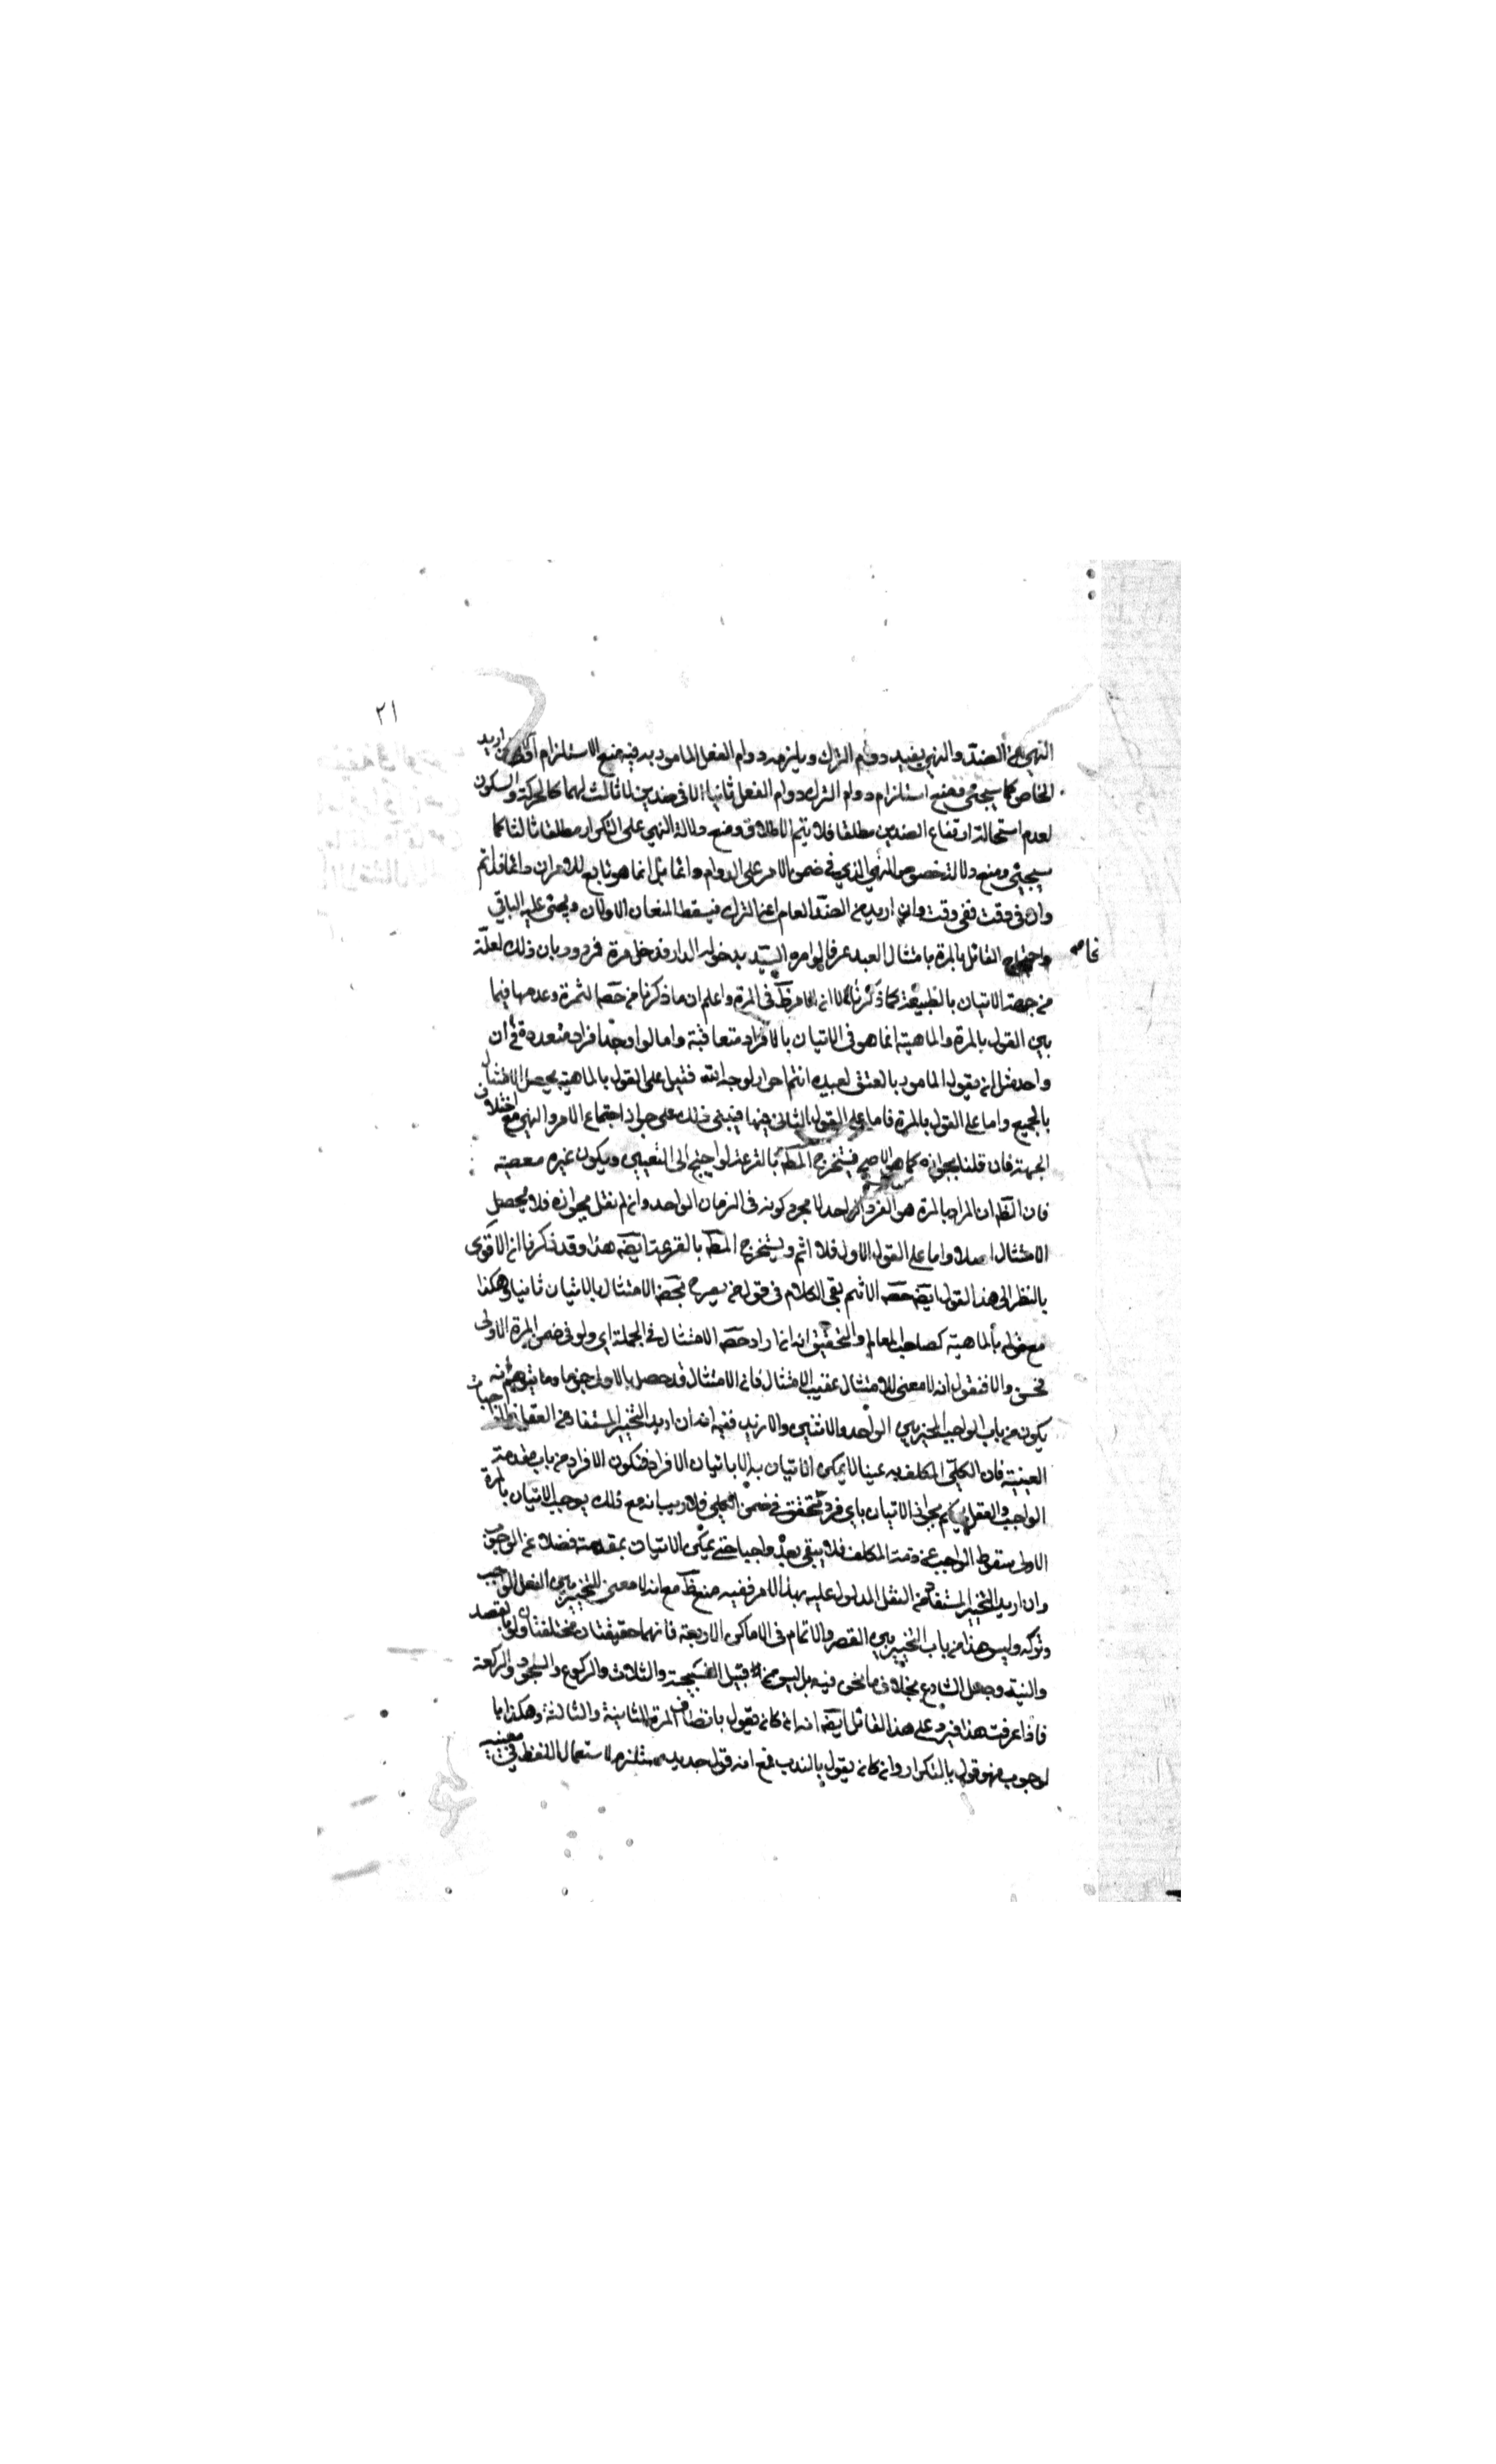 ٢١
النهي عن الضد والنهي يفيد دوام الترك ويلزمه دوام الفعل المامور به فيه منع الاستلزام اولا ان اريد
الخاص كما سيجئ ومنع استلزام دوام الترك دوام الفعل ثانيا الا في ضدين لا ثالث لهما كالحركة والسكون
لعدم استحالة ارتفاع الضدين مطلقا فلا يتم الاطلاق ومنع دلالة النهي على التكرار مطلقا ثالثا كما
سيجئ ومنع دلالة خصوص النهي الذي في ضمن الامر على الدوام وانما هو تابع للامر ان دائما فدائم
وان في وقت ففي وقت وان اريد من الضد العام اعني الترك فيسقط المنعان الاولان ويجئ عليه الباقي
واحتجاج القائل بالمرة بامتثال العبد عرفا لو امره السيد بدخول الدار فدخل مرة فمردود بان ذلك لعله
من جهة الاتيان بالطبيعة كما ذكرنا لا ان الامر ظ في المرة واعلم ان ما ذكرنا من حصه الثمرة وعدمها فيما
بين القول بالمرة والماهية انما هو في الاتيان بالافراد متعاقبة واما لو اوجد افراد متعددة في ان
واحد مثل ان يقول المامور بالعتق لعبيده انتم احرار لوجه الله فقيل على القول بالماهية يحصل الامتثال
بالجميع واما على القول بالمرة فاما على القول الثاني فيها فيبتني ذلك على جواز اجتماع الامر والنهي مع اختلاف
الجهة فان قلنا بجوازه كما هو الاصح فيستخرج المطه بالقرعة لو احتيج الى التعيين ويكون غيره معصية
فان الظه ان المراد بالمرة هو الفرد الواحد لا مجرد كونه في الزمان الواحد وان لم نقل بجوازه فلا يحصل
الامتثال اصلا واما على القول الاول فلا اثم ويستخرج المطه بالقرعة ايضه هذا وقد ذكرنا ان الاقوى
بالنظر الى هذا القول ايضه حصه الاثم بقي الكلام في قول من يصرح بحصه الامتثال بالاتيان ثانيا وهكذا
مع قوله بالماهية كصاحب المعالم والتحقيق انه ان اراد حصه الامتثال في الجملة اي ولو في ضمن المرة الاولى
فحسن والا فنقول انه لا معنى للامتثال عقيب الامتثال فان الامتثال قد حصل بالاول جزما وما يتوهم انه
يكون من باب الواجب المخير بين الواحد والاثنين والازيد ففيه انه ان اريد التخيير المستفاد من العقل في الواجبات
العينية فان الكلي المكلف به عينا لا يمكن الاتيان به الا باتيان الافراد فتكون الافراد من باب مقدمة
الواجب والعقل يحكم بجواز الاتيان باي فرد تحقق في ضمن الكلي فلا ريب انه مع ذلك يوجب الاتيان بالمرة
الاولى سقوط الواجب عن ذمة المكلف فلا يبقى بعد واجبا حتى يمكن الاتيان بمقدمته فضلا عن الوجوب
وان اريد التخيير المستفاد من النقل المدلول عليه بهذا الامر ففيه منع ظ مع انه لا معنى للتخيير بين الفعل الواجب
وتركه وليس هذا من باب التخيير بين القصر والاتمام في الاماكن الاربعة فانهما حقيقتان مختلفتان ولو بالقصد
والنية وجعل الشارع بخلاف ما نحن فيه بل ليس من قبيل التسبيحة والثلاث والركوع والسجود والركعة
فاذا عرفت هذا فيرد على هذا القائل ايضه انه ان كان يقول باتصاف المرة الثانية والثالثة وهكذا بما
لوجوب فهو قول بالتكرار وان كان يقول بالندب فمع انه قول جديد مستلزم لاستعمال اللفظ في معنييه